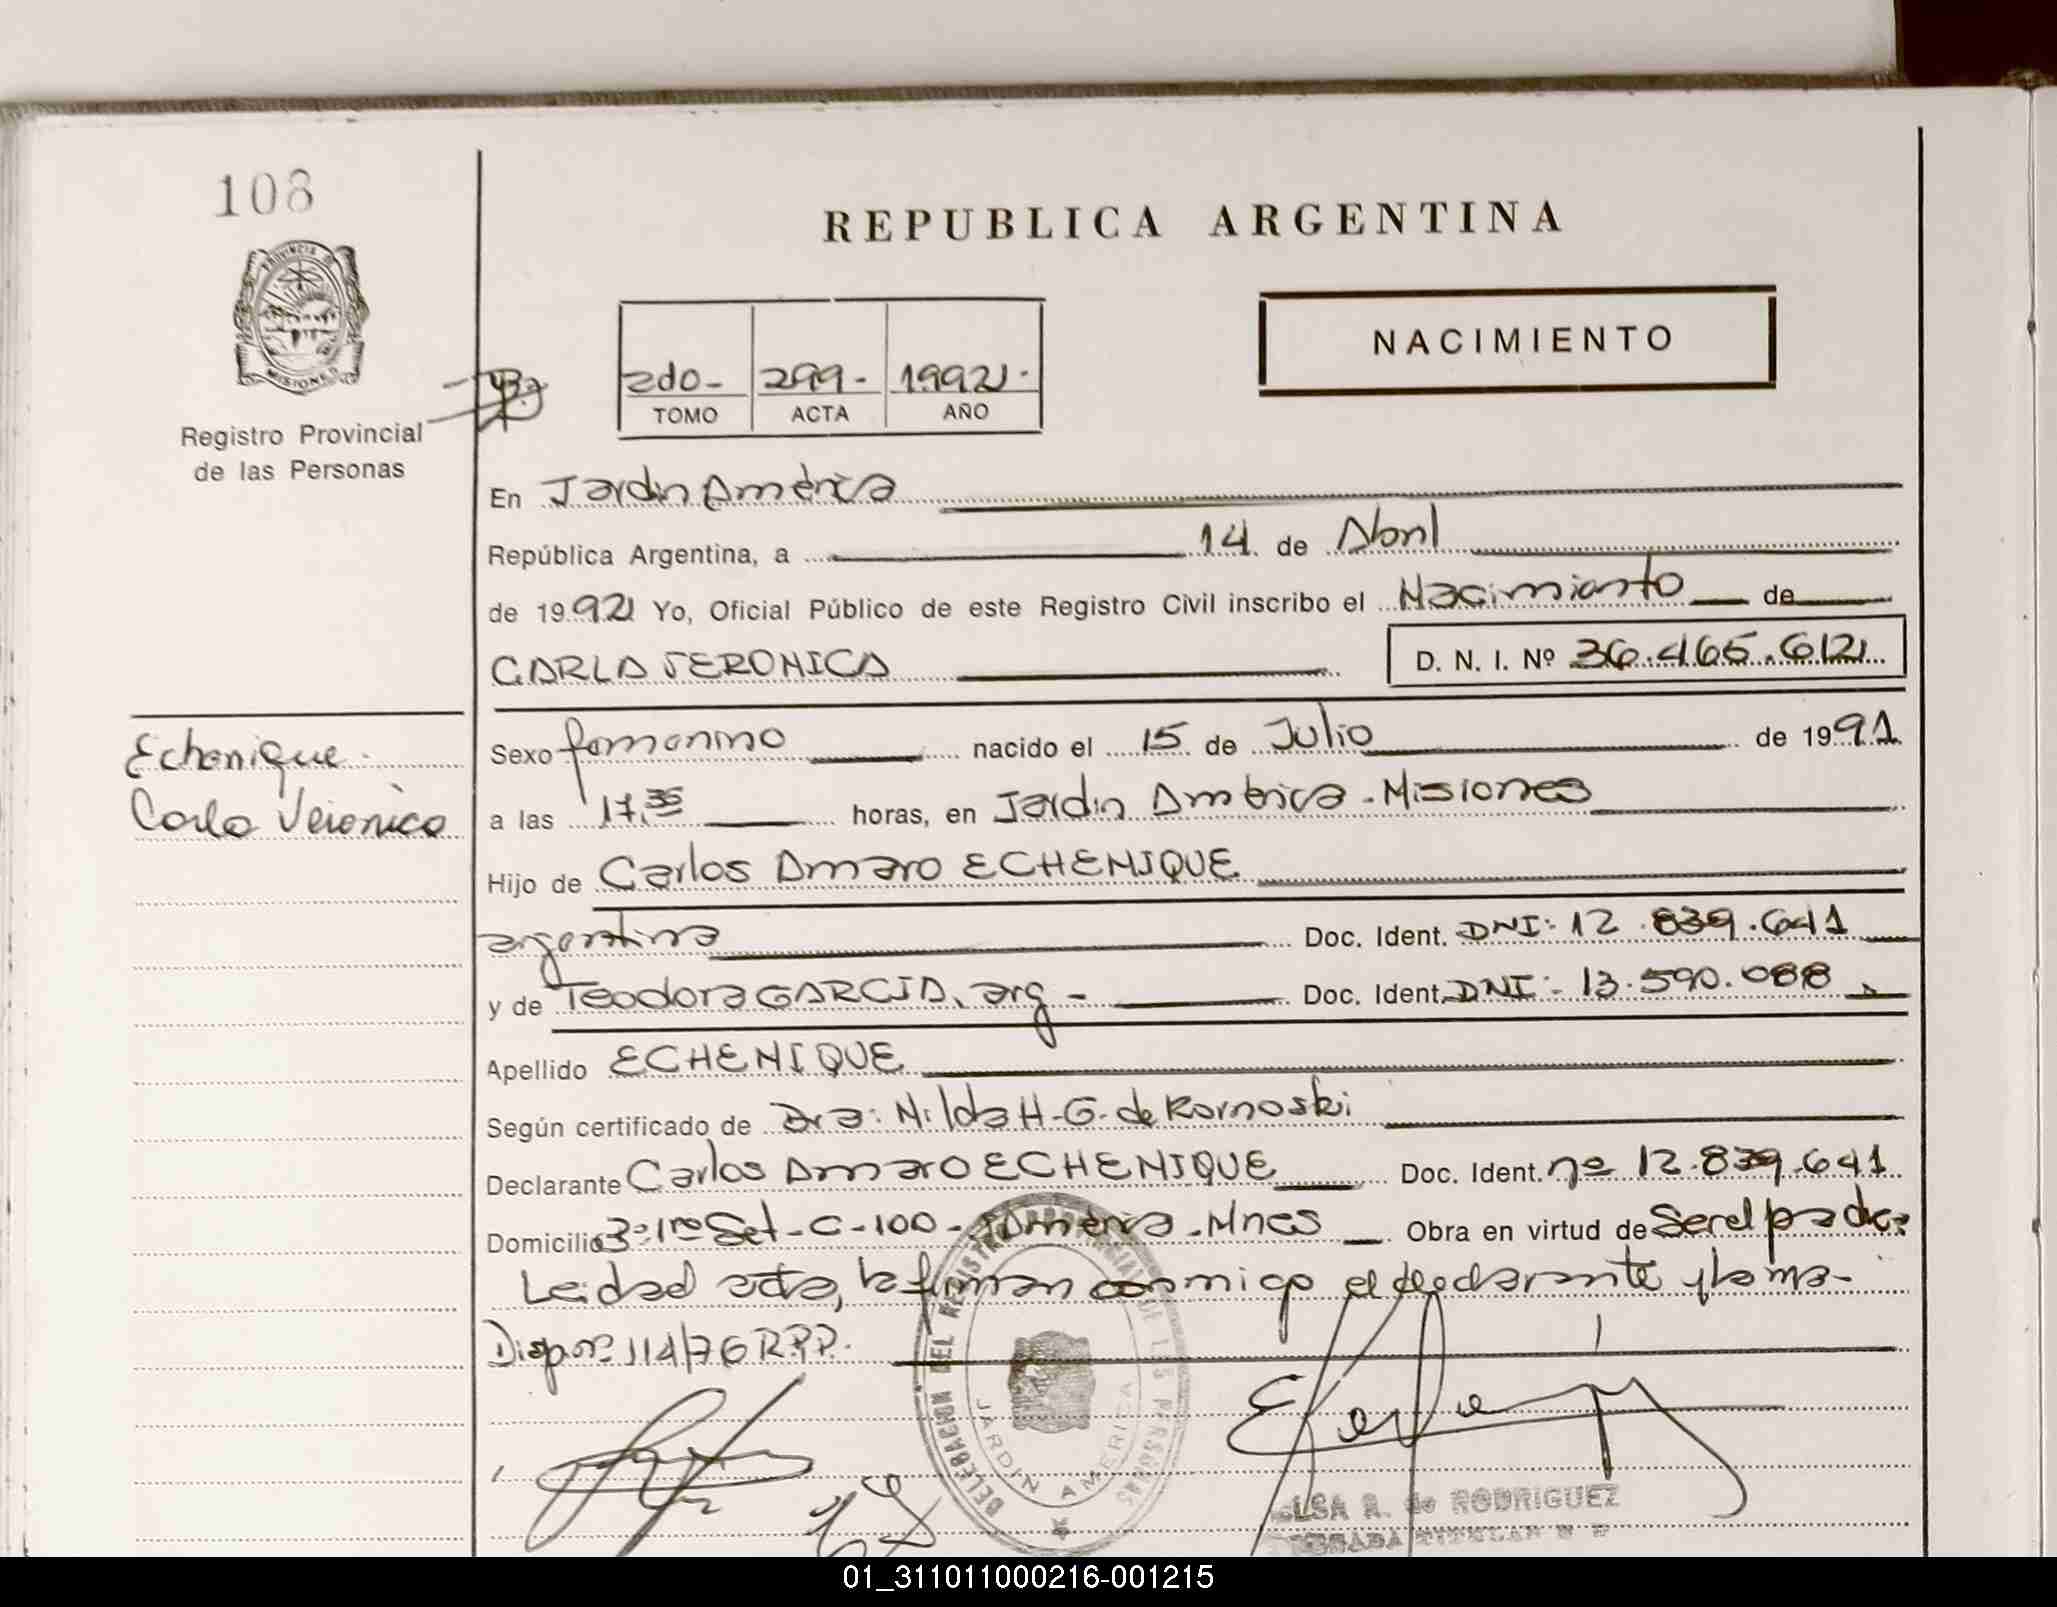 108
REPUBLICA ARGENTINA
NACIMIENTO
2do- 299- 1992.
TOMO ACTA AÑO
PROVINCIA DE
MISIONES
Registro Provincial
de las Personas
En Jardin América
República Argentina, a 14 de Abril
de 1992 Yo, Oficial Público de este Registro Civil inscribo el Nacimiento de
CARLA VERONICA D. N. I. Nº 36.465.612
Echenique
Carla Veronica
Sexo femenino nacido el 15 de Julio de 1991
a las 17,35 horas, en Jardin América - Misiones
Hijo de Carlos Amaro ECHENIQUE
argentina Doc. Ident. DNI: 12.839.641
y de Teodora GARCIA, arg - Doc. Ident. DNI: 13.590.088
Apellido ECHENIQUE
Según certificado de Dra: Nilda H. G. de Kornoski
Declarante Carlos Amaro ECHENIQUE Doc. Ident. nº 12.839.641
Domicilio -C-100- América. Mnes Obra en virtud de Ser el padre
Leida el acta, la firman conmigo el declarante y la ma-
Disp nº 114/76 R.P.P.
DELEGACIÓN DEL REGISTRO PROVINCIAL DE LAS PERSONAS
JARDIN AMERICA
ELSA R. de RODRIGUEZ
DELEGADA TITULAR
01_311011000216-001215